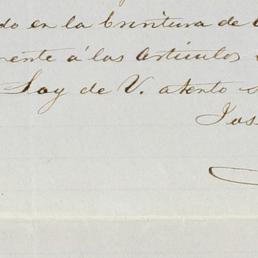 do en la Escritura de
mente á las Artículos
Soy de V. atento
Jos